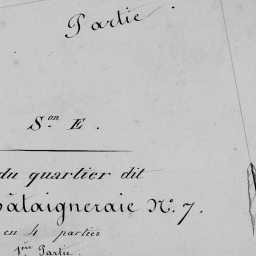 Partie.
S.on E.
du quartier dit
hâtaigneraie N.o 7.
en 4 parties
1ère Partie.